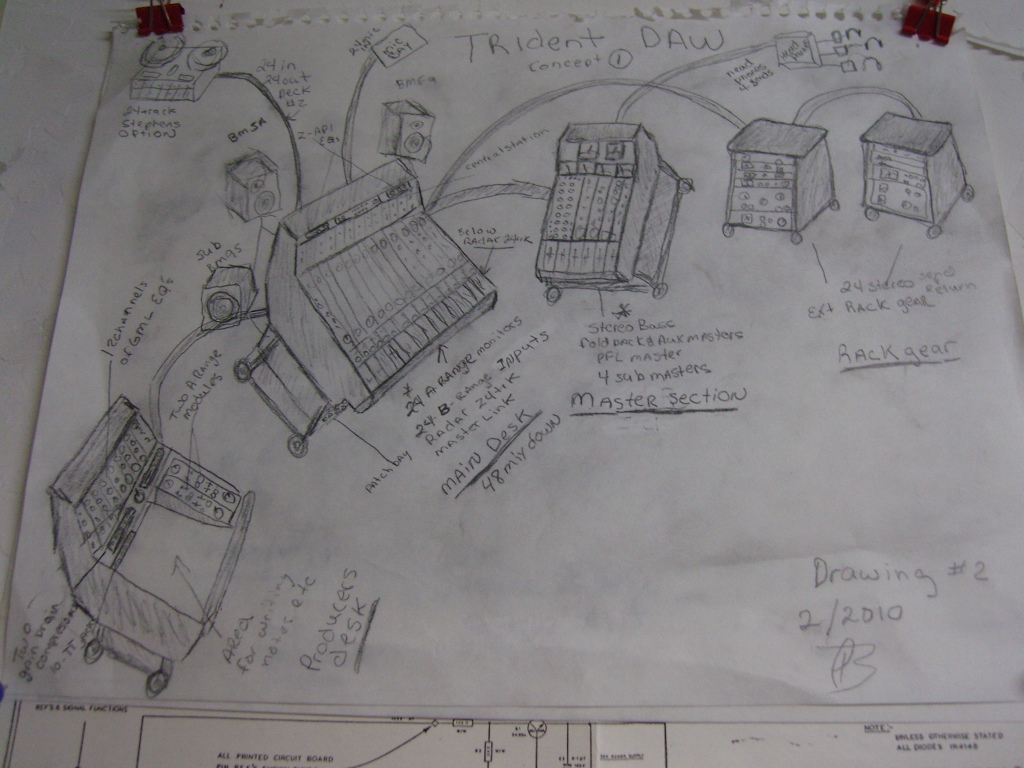 TRIDENT DAW
Concept 1
24 track
Stephens
Option
24 in
24 out
Deck
#2
2-API
EQs
BAY
BM5A
BM5A
Sub
BMAS
12 channels
of GML EQ's
Two A Range
Modules
centralstation
Below
Radar 24K
head
phones
24 stereo send
return
Ext Rack gear
RACK gear
*
Stereo Bass
fold back & Aux masters
PFL master
4 sub masters
MASTER Section
*
24 A Range monitors
24 B- Range INPUTS
Radar 24K
Master Link
MAIN Desk
48 mix down
Patchbay
Two
gain Brain
Compressors
Area
for writing
notes etc
Producers
desk
Drawing #2
2/2010
KEYS & SIGNAL FUNCTIONS
ALL PRINTED CIRCUIT BOARD
NOTE:-
UNLESS OTHERWISE STATED
ALL DIODES IN4148